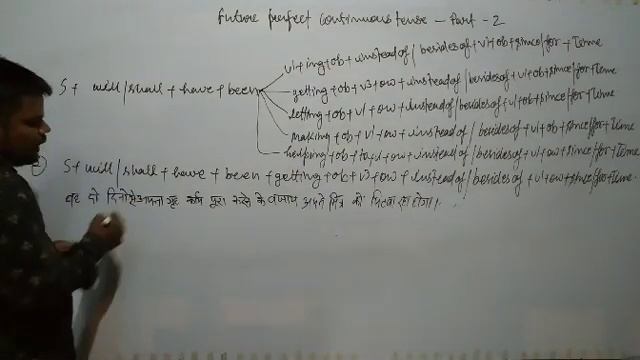 Future perfect continuous tense - Part - 2
v1+ing+ob+ow+insteadof/besidesof+v1+ob+since/for+Time
S+ will/shall + have + been
getting+ob+v3+ow+insteadof/besidesof+v1+ob+since/for+Time
letting+ob+v1+ow+insteadof/besidesof+v1+ob+since/for+Time
making+ob+v1+ow+insteadof/besidesof+v1+ob+since/for+Time
helping+ob+to+v1+ow+insteadof/besidesof+v1+ow+since/for+Time
S+ will/shall + have + been + getting+ob+v3+ow+insteadof/besidesof+v1+ow+since/for+Time.
वह दो दिनों से अपना गृह कार्य पूरा करने के बजाय अपने मित्र को रहा होगा।